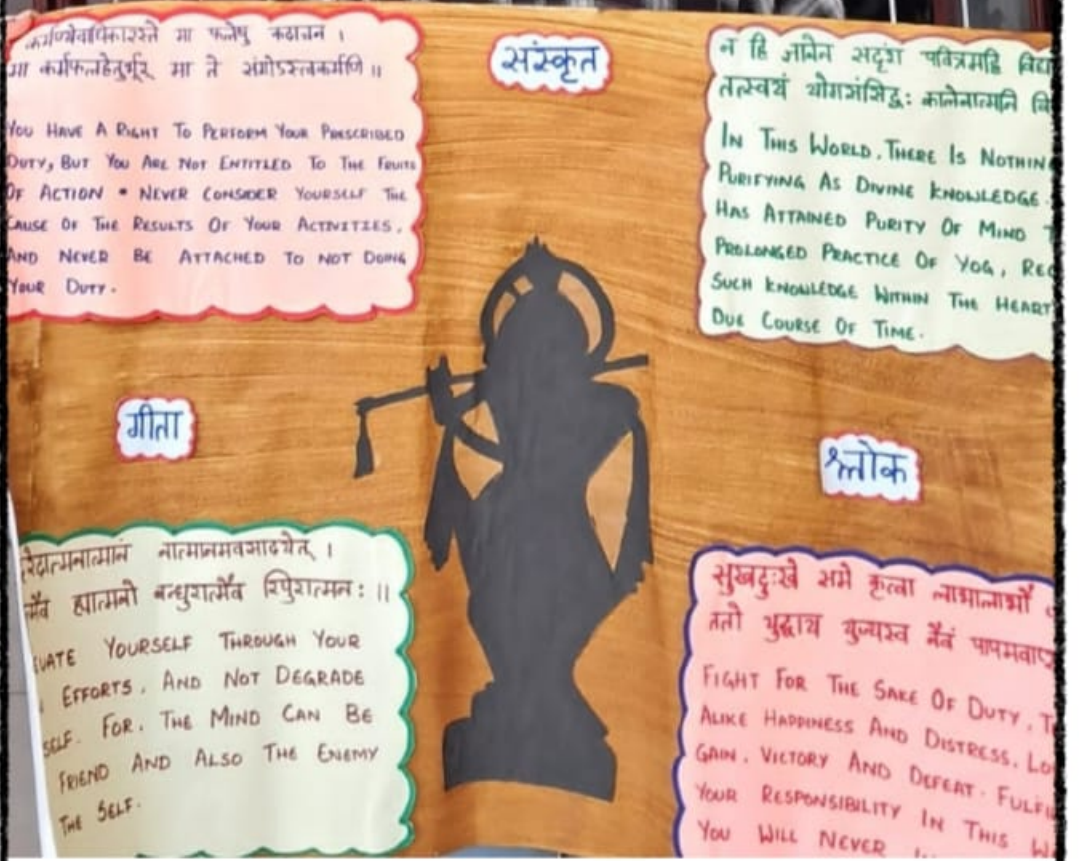 कर्मण्येवाधिकारस्ते मा फलेषु कदाचन ।
मा कर्मफलहेतुर्भूर् मा ते संगोऽस्त्वकर्मणि ॥
YOU HAVE A RIGHT TO PERFORM YOUR PRESCRIBED
DUTY, BUT YOU ARE NOT ENTITLED TO THE FRUITS
OF ACTION • NEVER CONSIDER YOURSELF THE
CAUSE OF THE RESULTS OF YOUR ACTIVITIES,
AND NEVER BE ATTACHED TO NOT DOING
YOUR DUTY.
संस्कृत
न हि ज्ञानेन सदृशं
तत्स्वयं योगसंसिद्धः कालेनात्मनि
IN THIS WORLD, THERE IS
PURIFYING AS DIVINE KNOWLEDGE.
HAS ATTAINED PURITY OF MIND
PROLONGED PRACTICE OF YOG,
SUCH KNOWLEDGE WITHIN THE HEART
DUE COURSE OF TIME.
गीता
श्लोक
नात्मानमवसादयेत् ।
ह्यात्मनो बन्धुरात्मैव रिपुरात्मनः ॥
YOURSELF THROUGH YOUR
EFFORTS, AND NOT DEGRADE
FOR, THE MIND CAN BE
FRIEND AND ALSO THE ENEMY
THE SELF.
सुखदुःखे समे कृत्वा लाभालाभौ
ततो युद्धाय युज्यस्व नैवं
FIGHT FOR THE SAKE OF DUTY,
ALIKE HAPPINESS AND DISTRESS,
GAIN, VICTORY AND DEFEAT.
YOUR RESPONSIBILITY IN THIS
YOU WILL NEVER